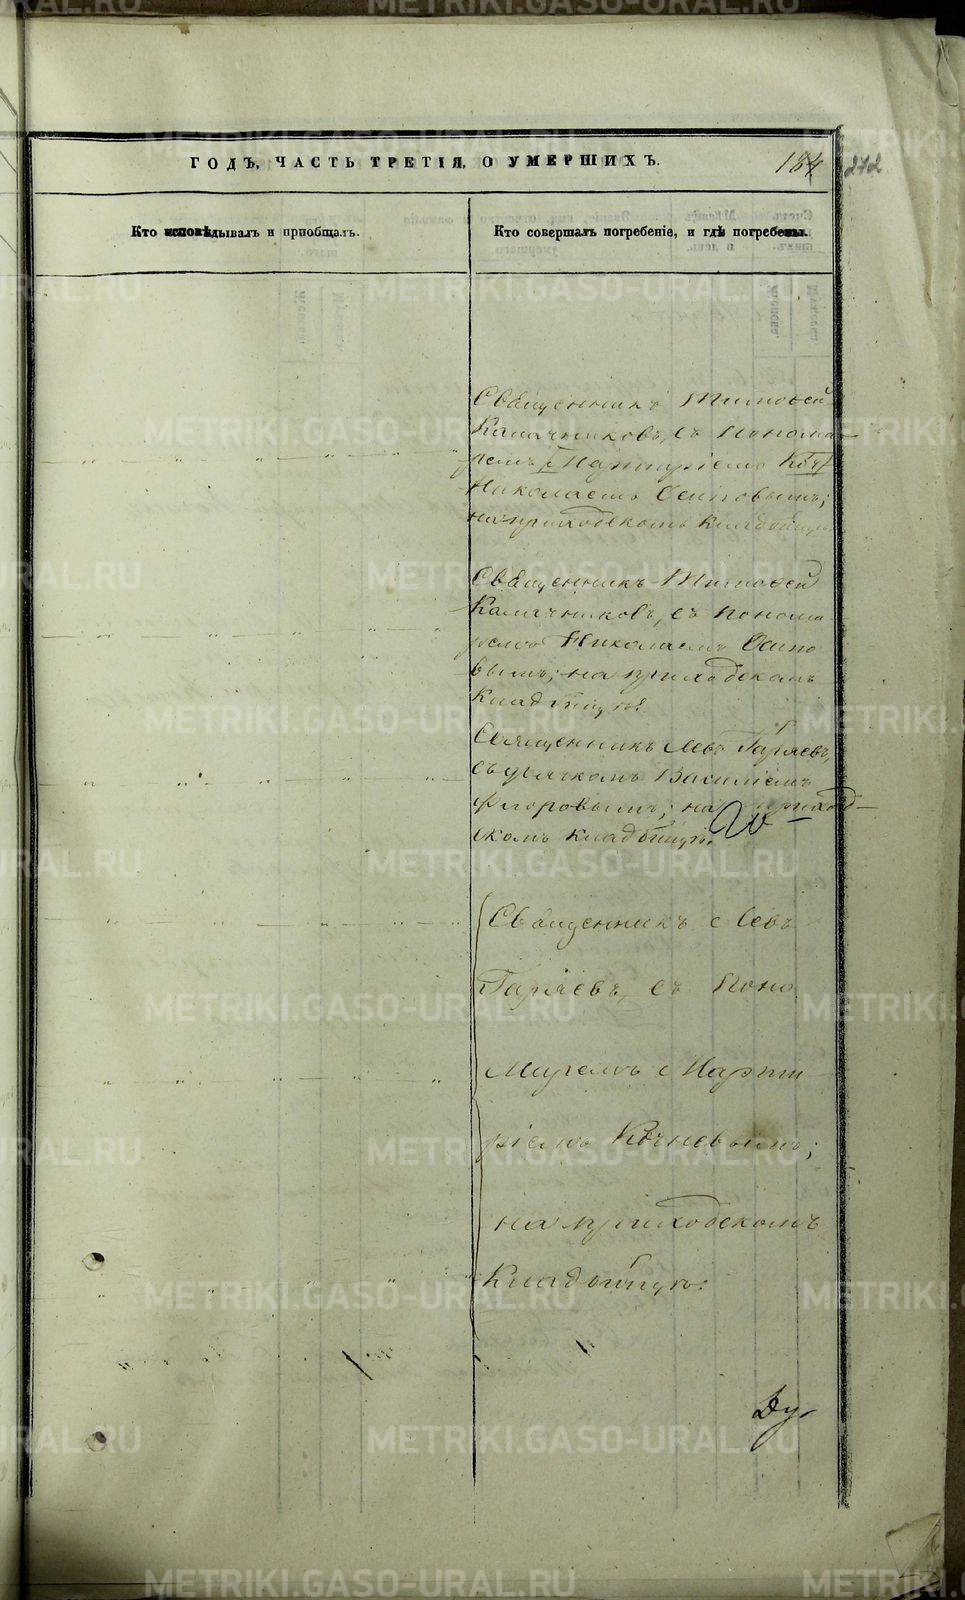 ГОДЪ, ЧАСТЬ ТРЕТІЯ, О УМЕРШИХЪ.
184
272
Кто исповѣдывалъ и пріобщалъ.
Кто совершалъ погребеніе, и гдѣ погребены.
Священникъ Тимоѳей
Калачниковъ, съ Понома
ремъ
Николаемъ Осиповымъ;
на приходскомъ кладбищѣ
Священникъ Тимоѳей
Калачниковъ, съ понома
ремъ Николаемъ Осипо
вымъ; на приходскомъ
Кладбищѣ.
Священникъ Левъ Гаряевъ,
съ дьячкомъ Василіемъ
Флоровымъ; на приход
скомъ кладбищѣ.
Священникъ Левъ
Гаряевъ, съ Поно
маремъ
Кочневымъ;
на приходскомъ
Кладбищѣ.
METRIKI.GASO-URAL.RU